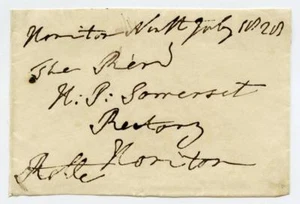 Honiton Ninth July 1828
The Revd
H: P: Somerset
Rectory
Rolle Honiton